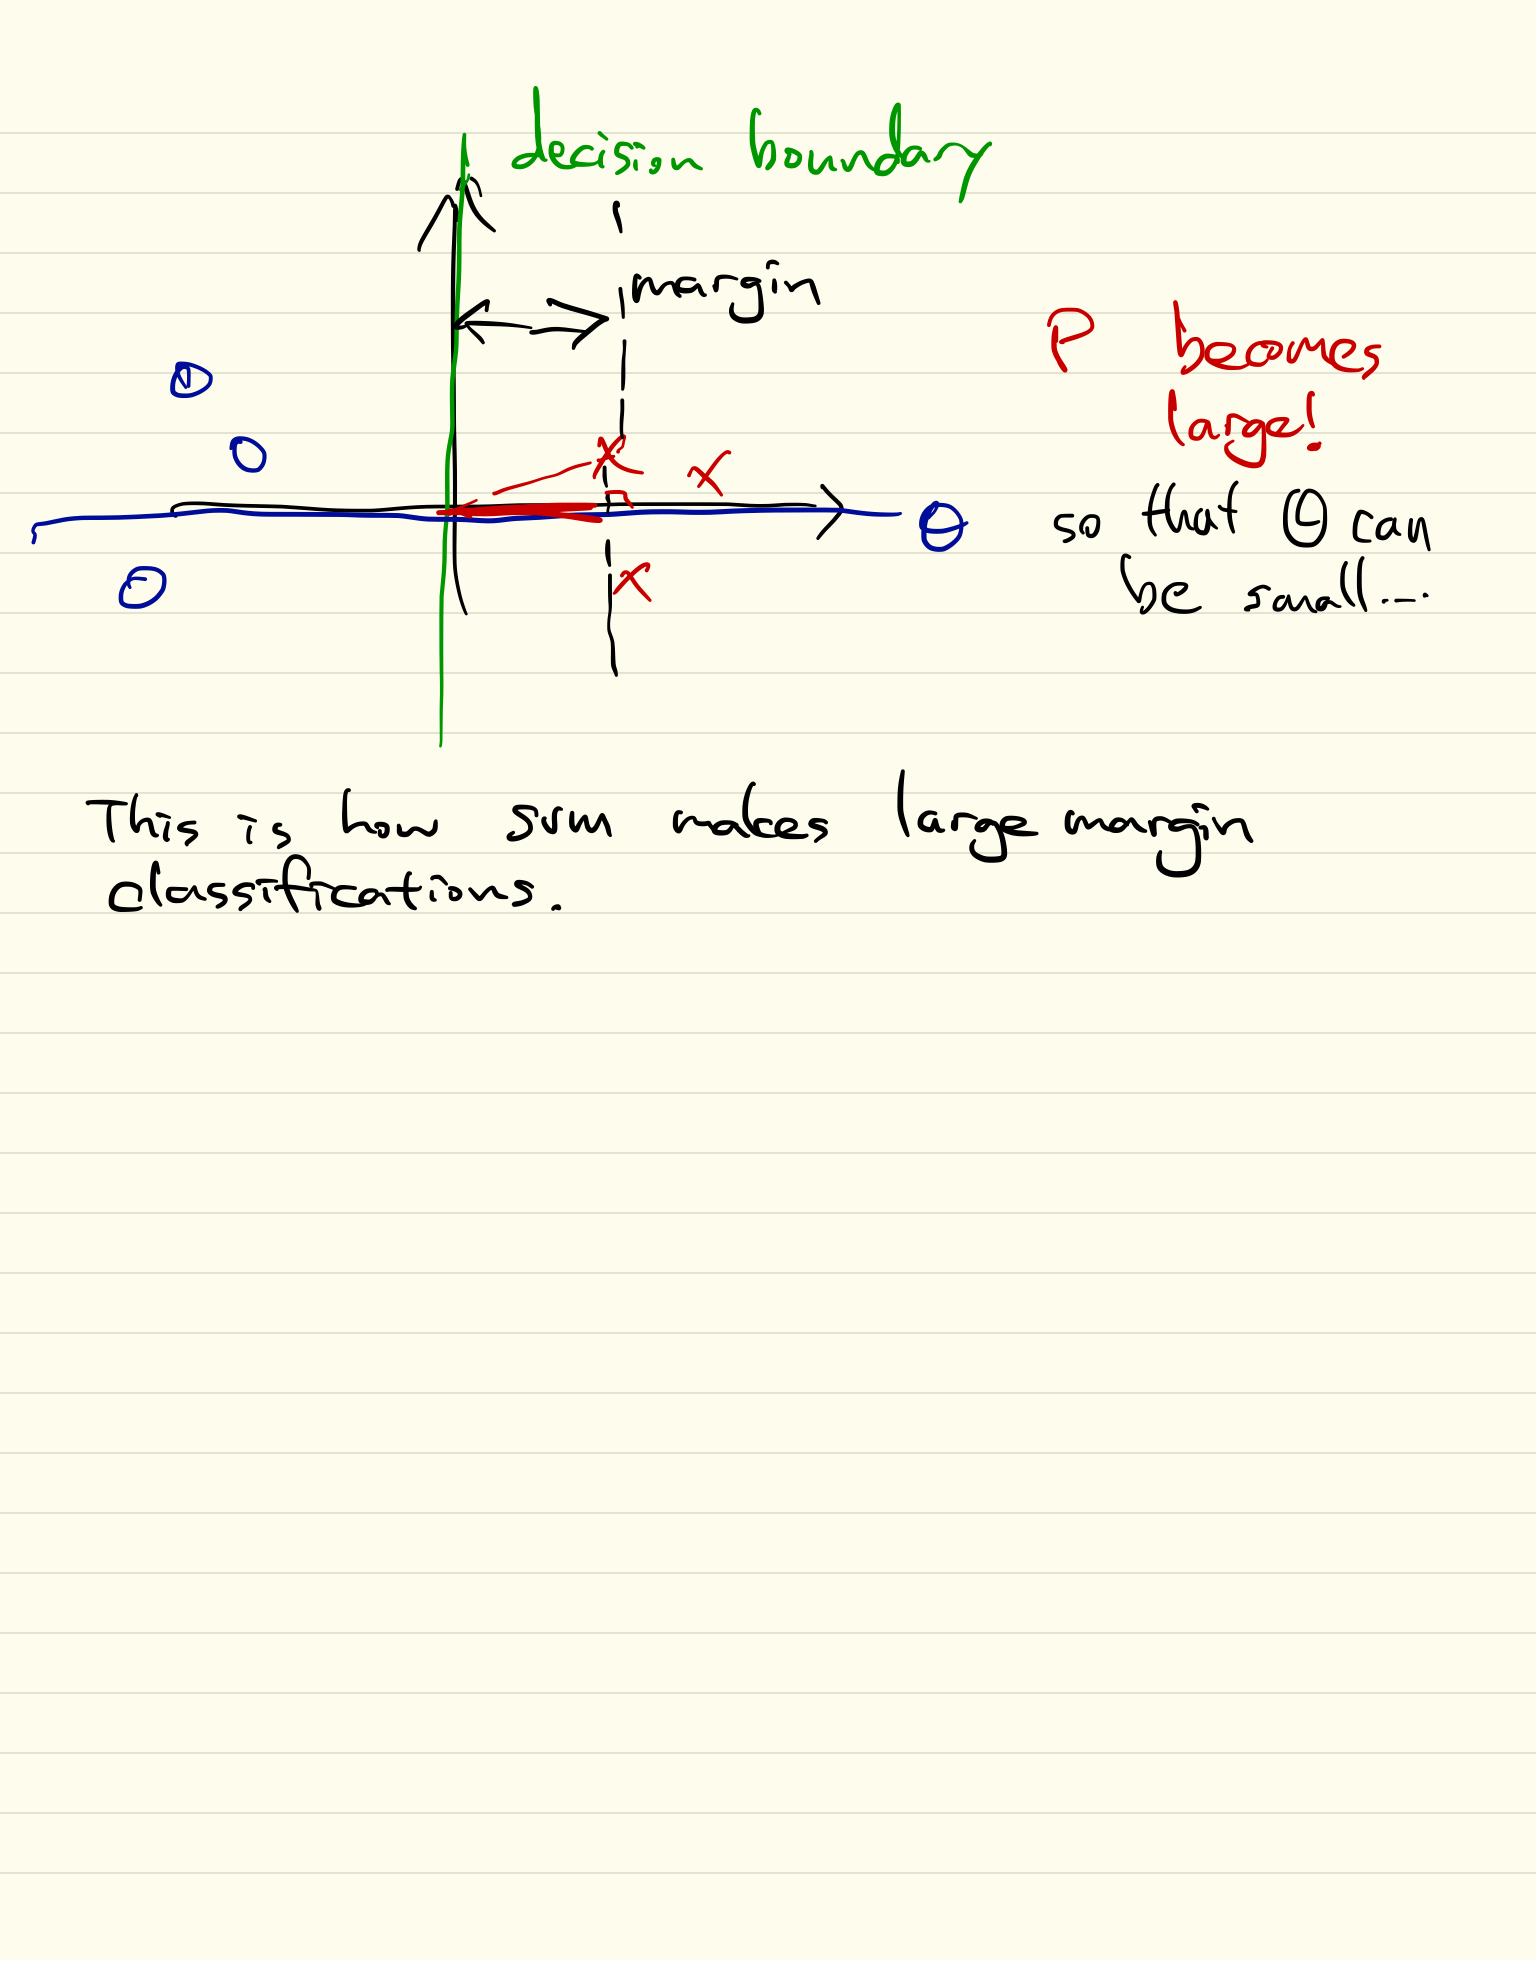 decision boundary
margin
P becomes
large!
θ so that θ can
be small...
This is how svm makes large margin
classifications.